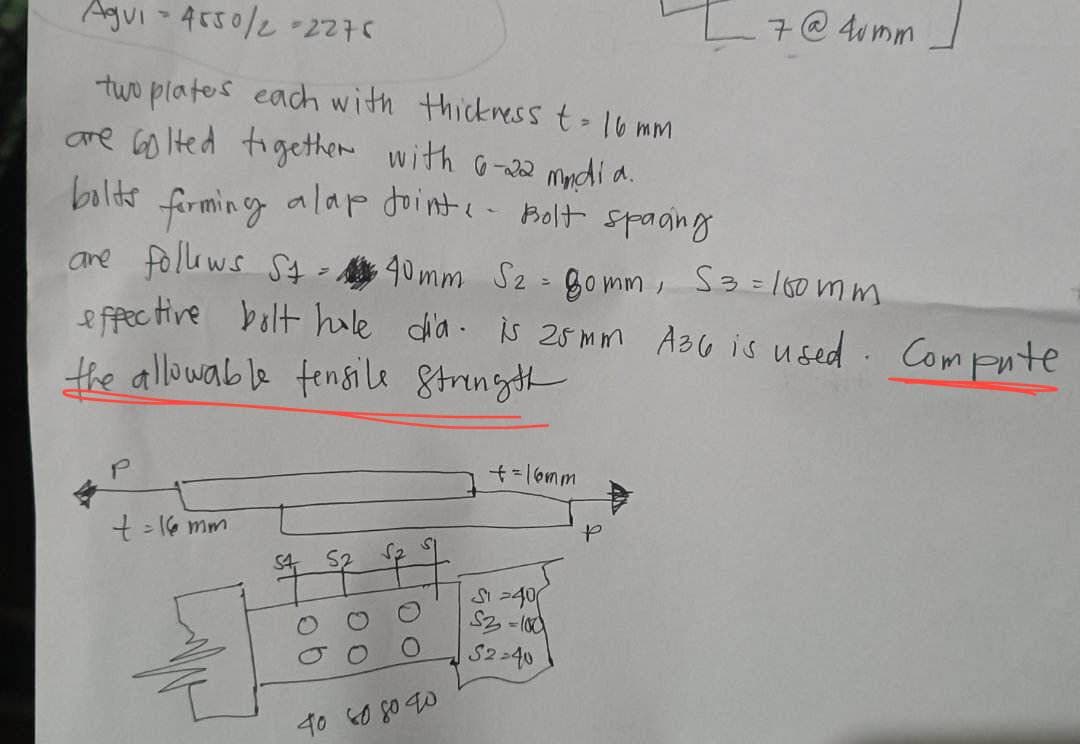 Agv1 = 4550/2 = 2275
7 @ 40mm
two plates each with thickness t = 16 mm
are bolted together with 6-22 mm dia.
bolts forming a lap joint. - Bolt spacing
are follows S1 = 40mm S2 = 80mm, S3 = 100mm
effective bolt hole dia. is 25mm A36 is used. Compute
the allowable tensile strength
P
t = 16mm
t = 16 mm
P
S1 S2 S2 S1
S1 = 40
S3 = 100
S2 = 40
40 80 80 40